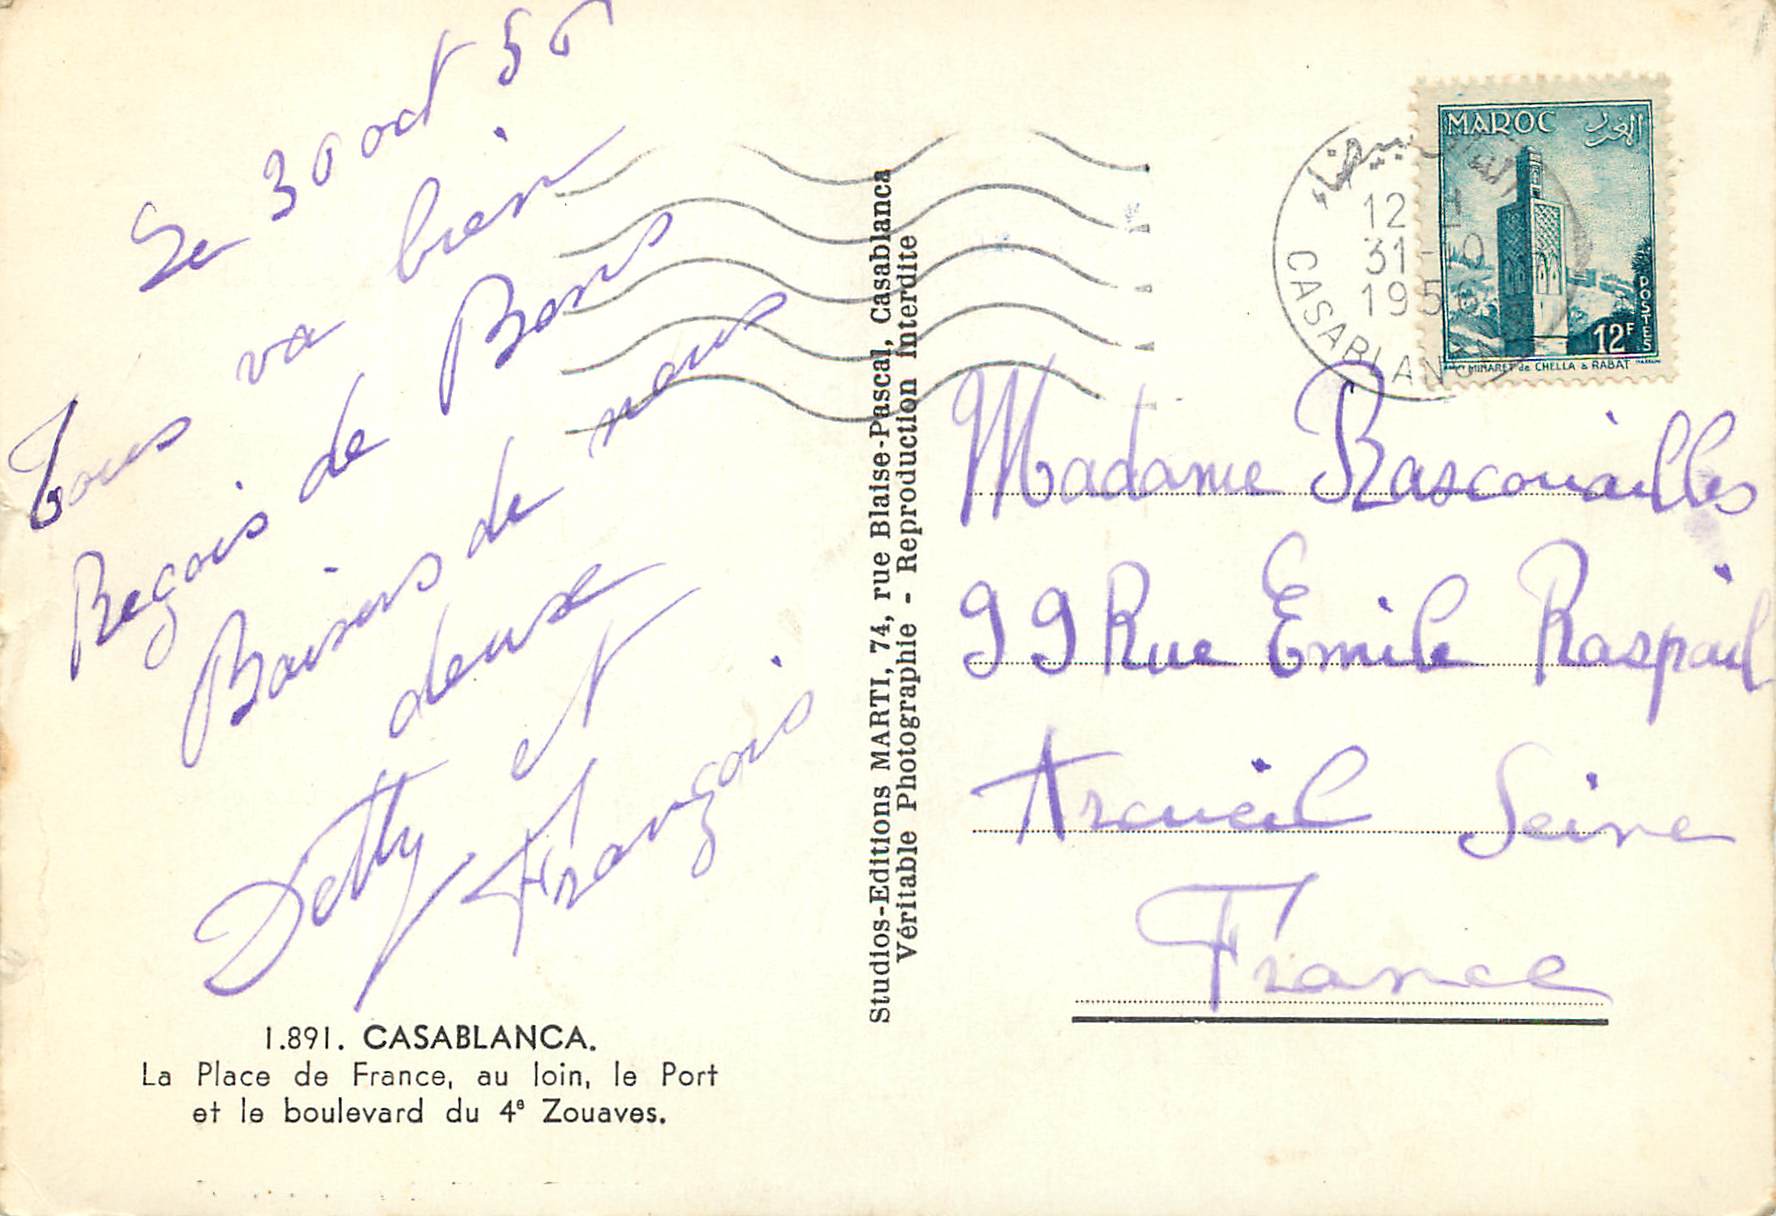 Le 30 oct 56
Tous va bien
Reçois de Bons
Baisers de nous
deux
Detty et
François
1.891. CASABLANCA.
La Place de France, au loin, le Port
et le boulevard du 4e Zouaves.
Studios-Editions MARTI, 74, rue Blaise-Pascal, Casablanca
Véritable Photographie - Reproduction interdite
MAROC
المغرب
POSTES
12F
MINARET de CHELLA à RABAT
الدار البيضاء
12
31-10
1956
CASABLANCA
Madame Rascouailles
99 Rue Emile Raspail
Arcueil Seine
France